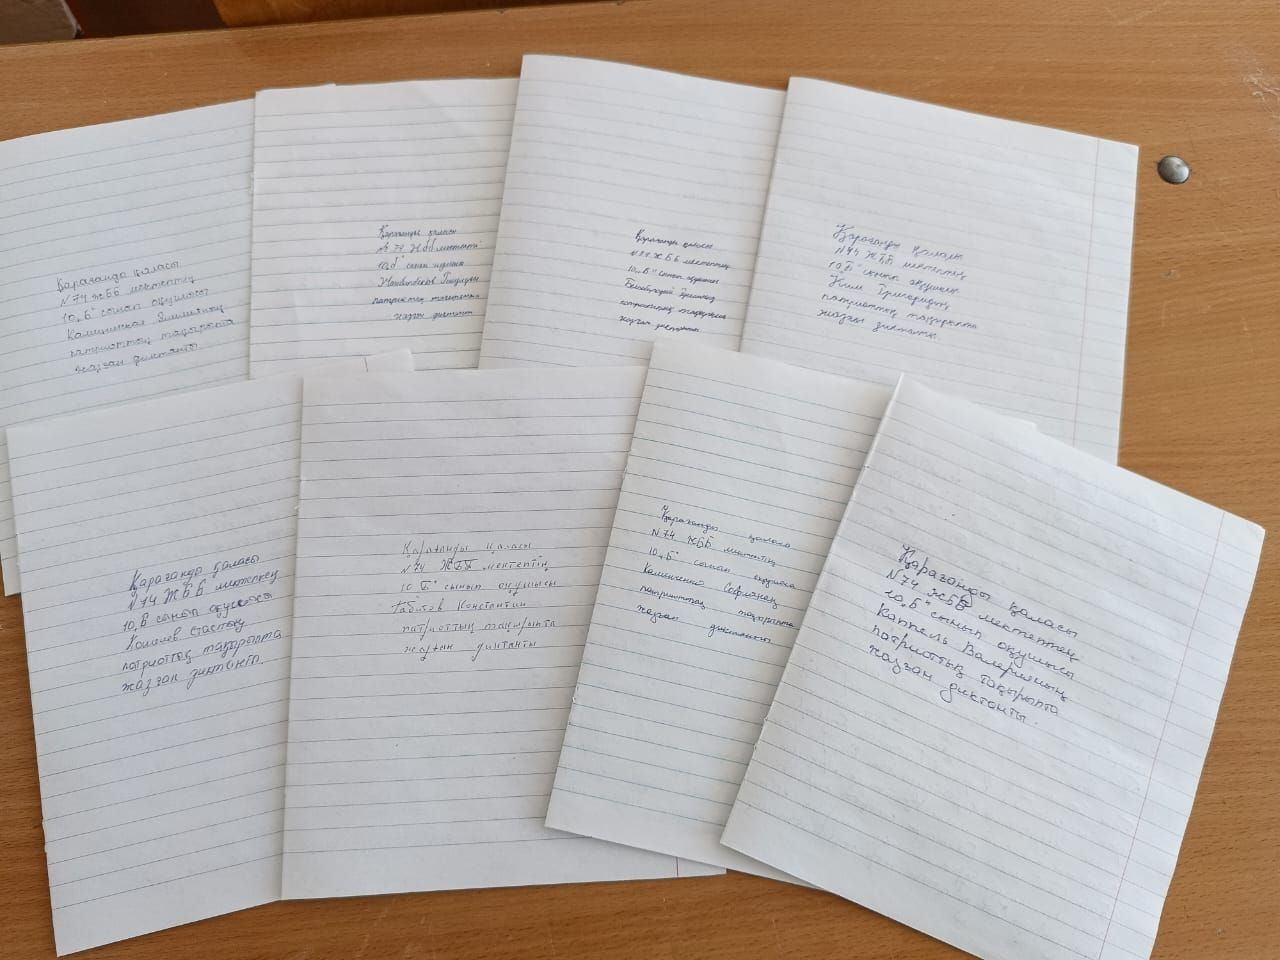 Қарағанда қаласы
N74 ЖББ мектептің
10 "Б" сынып оқушысы
патриоттық тақырыпта
жазған диктанты
Қарағанды қаласы
N 74 ЖББ мектептің
10 "Б" сынып
патриоттық тақырыпта
жазған диктанты
Қарағанды қаласы
N 74 ЖББ мектептің
10 "Б" сынып оқушысы
патриоттық тақырыпта
жазған диктанты
Қарағанды қаласы
N74 ЖББ мектептің
10 "Б" сынып оқушысы
Ким Григорийдің
патриоттық тақырыпта
жазған диктанты.
Қарағанда қаласы
N74 ЖББ мектептің
10 "Б" сынып оқушысы
Стастың
патриоттық тақырыпта
жазған диктанты.
Қарағанды қаласы
N 74 ЖББ мектептің
10 "Б" сынып оқушысы
Габитов Константин
патриоттың тақырыпта
жазған диктанты
Қарағанды қаласы
N 74 ЖББ мектептің
10 "Б" сынып
патриоттық тақырыпта
жазған диктанты
Қарағанды қаласы
N 74 ЖББ мектептің
10 "Б" сынып оқушысы
Каппель Валерияның
патриоттық тақырыпта
жазған диктанты.